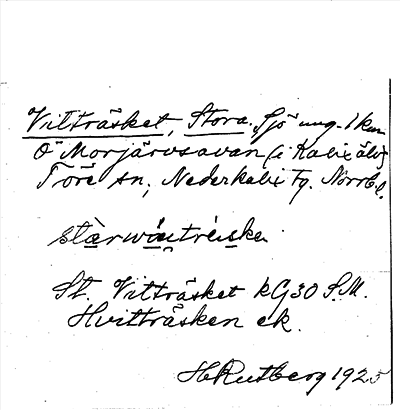 Vitträsket, Stora. Sjö ung. 1 km
Ö Morjärvsavan (i Kalix älv)
Töre sn, Nederkalix Fg. Norrb. l.
St. Vitträsket kG30 S.M.
Hvitträsken ek.
H Rutberg 1925